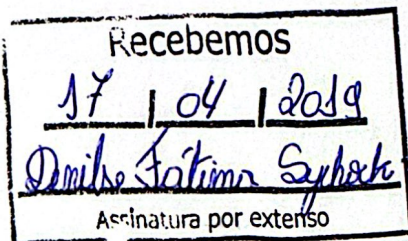 Recebemos
17 / 04 / 2019
Denilse Fátima
Assinatura por extenso